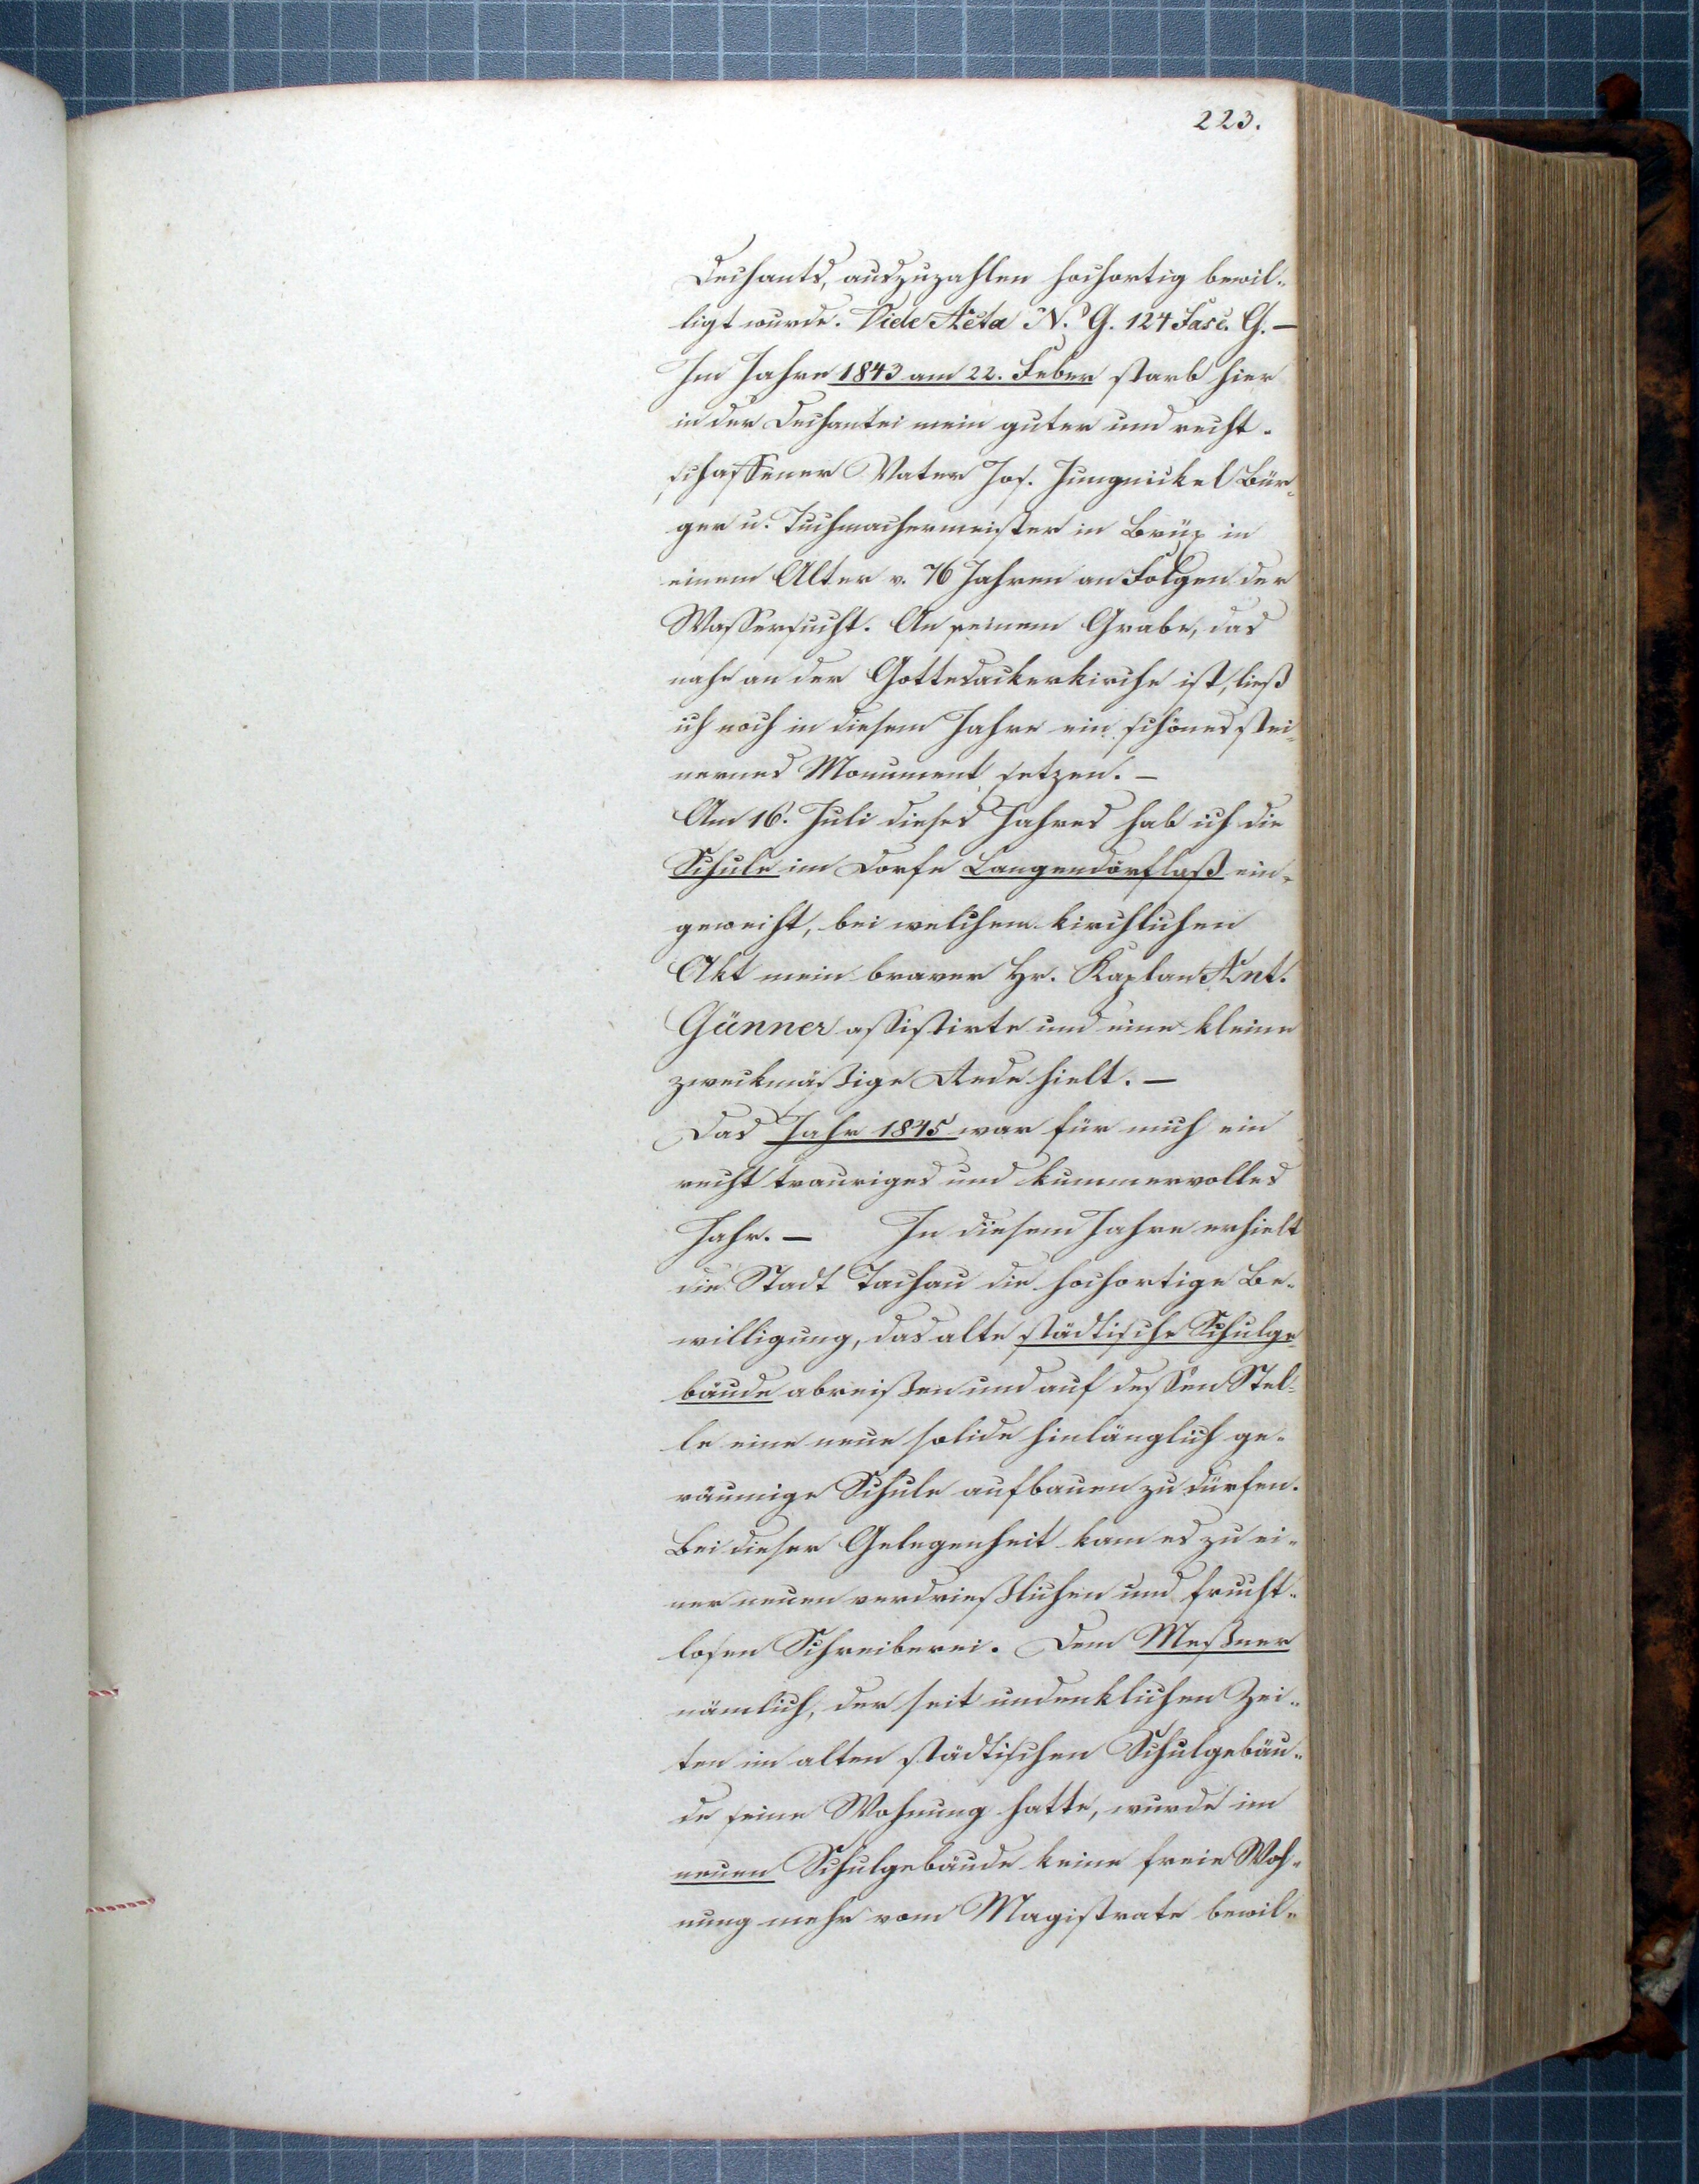 223.
Dechants, auszuzahlen hochortig bewil-
ligt wurde. Vide Acta N. G. 124 Fasc. G. —
Im Jahre 1843 am 22. Feber starb hier
in der Dechantei mein guter und recht-
schaffener Vater Jos. Jungnickel Bür-
ger u. Tuchmachermeister in Brüx in
einem Alter v. 76 Jahren an Folgen der
Wassersucht. An seinem Grabe, das
nahe an der Gottesackerkirche ist, ließ
ich noch in diesem Jahre ein schönes stei-
nernes Monument setzen. —
Am 16. Juli dieses Jahres hab ich die
Schule im Dorfe Langendörflaß ein-
geweiht, bei welchem kirchlichen
Akt mein braver Hr. Kaplan Ant.
Günner assistirte und eine kleine
zweckmäßige Rede hielt. —
Das Jahr 1845 war für mich ein
recht trauriges und kummervolles
Jahr. — In diesem Jahre erhielt
die Stadt Tachau die hochortige Be-
willigung, das alte städtische Schulge-
bäude abreißen und auf dessen Stel-
le eine neue solide hinlänglich ge-
räumige Schule aufbauen zu dürfen.
Bei dieser Gelegenheit kam es zu ei-
ner neuen verdrießlichen und frucht-
losen Schreiberei. Dem Meßner
nämlich, der seit undenklichen Zei-
ten im alten städtischen Schulgebäu-
de seine Wohnung hatte, wurde im
neuen Schulgebäude keine freie Woh-
nung mehr vom Magistrate bewil-